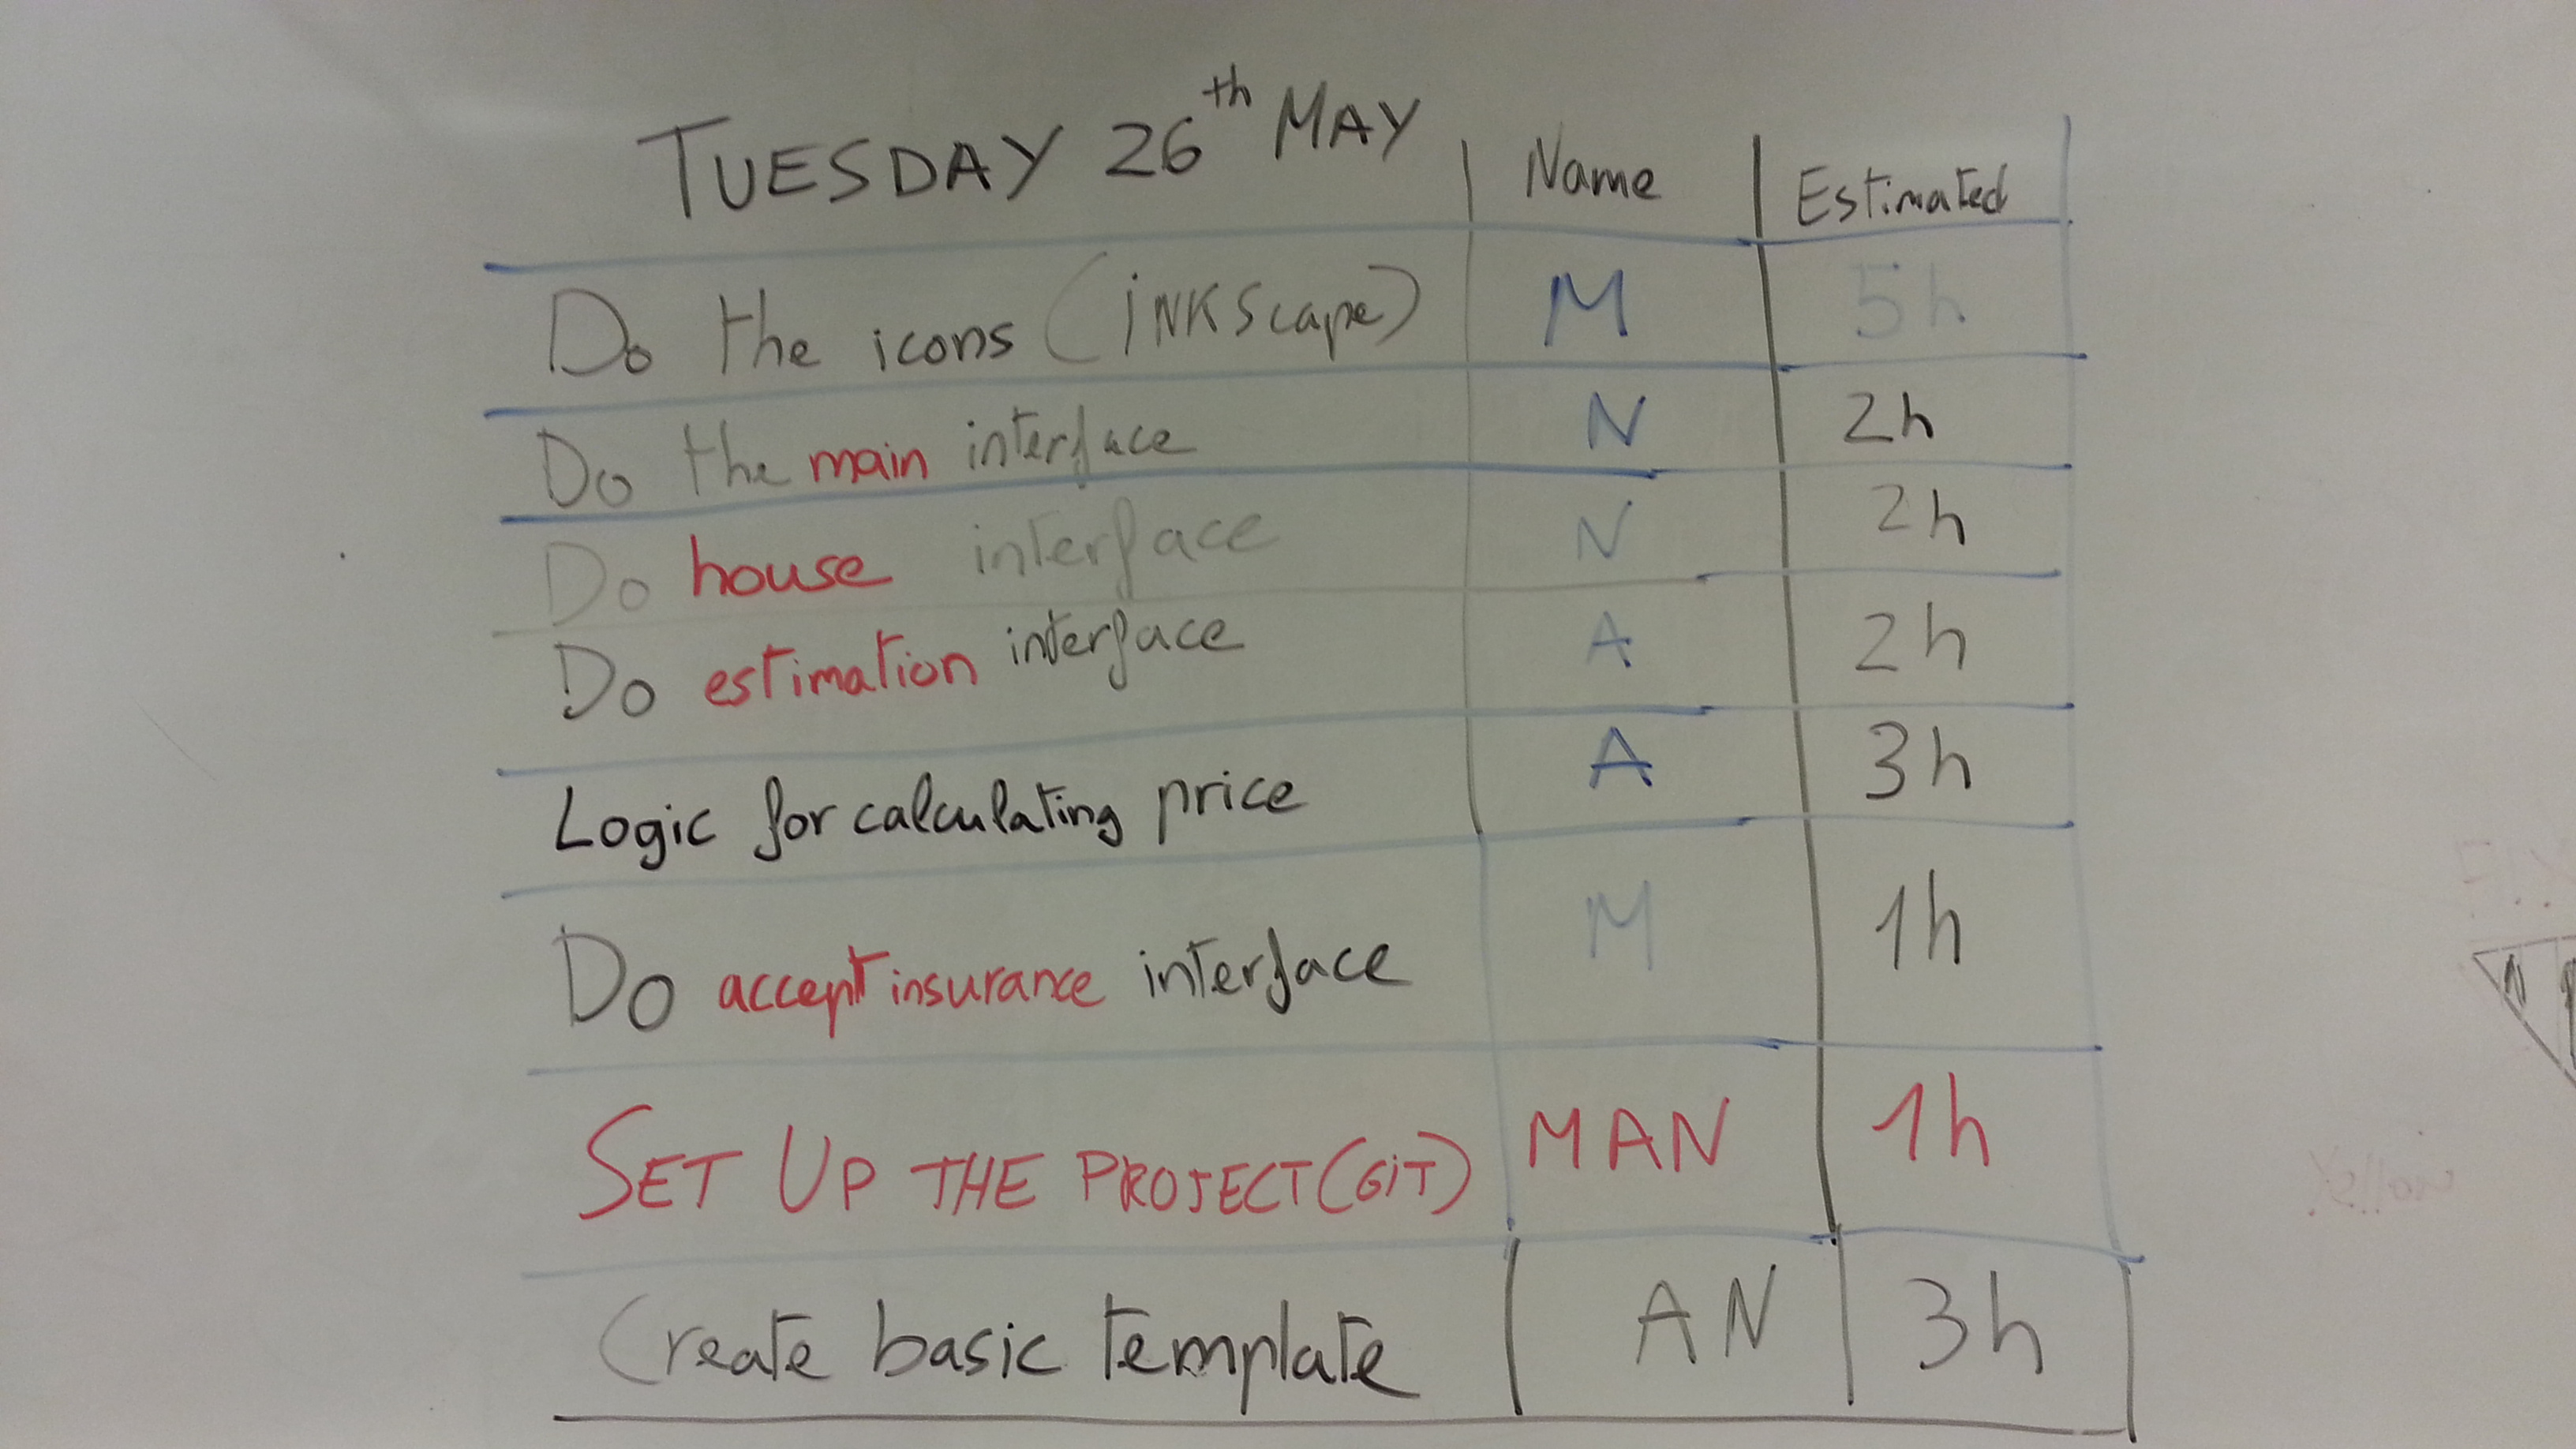 TUESDAY 26th MAY Name Estimated
Do the icons (iNKScape) M 5h
Do the main interface N 2h
Do house interface N 2h
Do estimation interface A 2h
Logic for calculating price A 3h
Do accept insurance interface M 1h
SET UP THE PROJECT (GiT) MAN 1h
Create basic template AN 3h